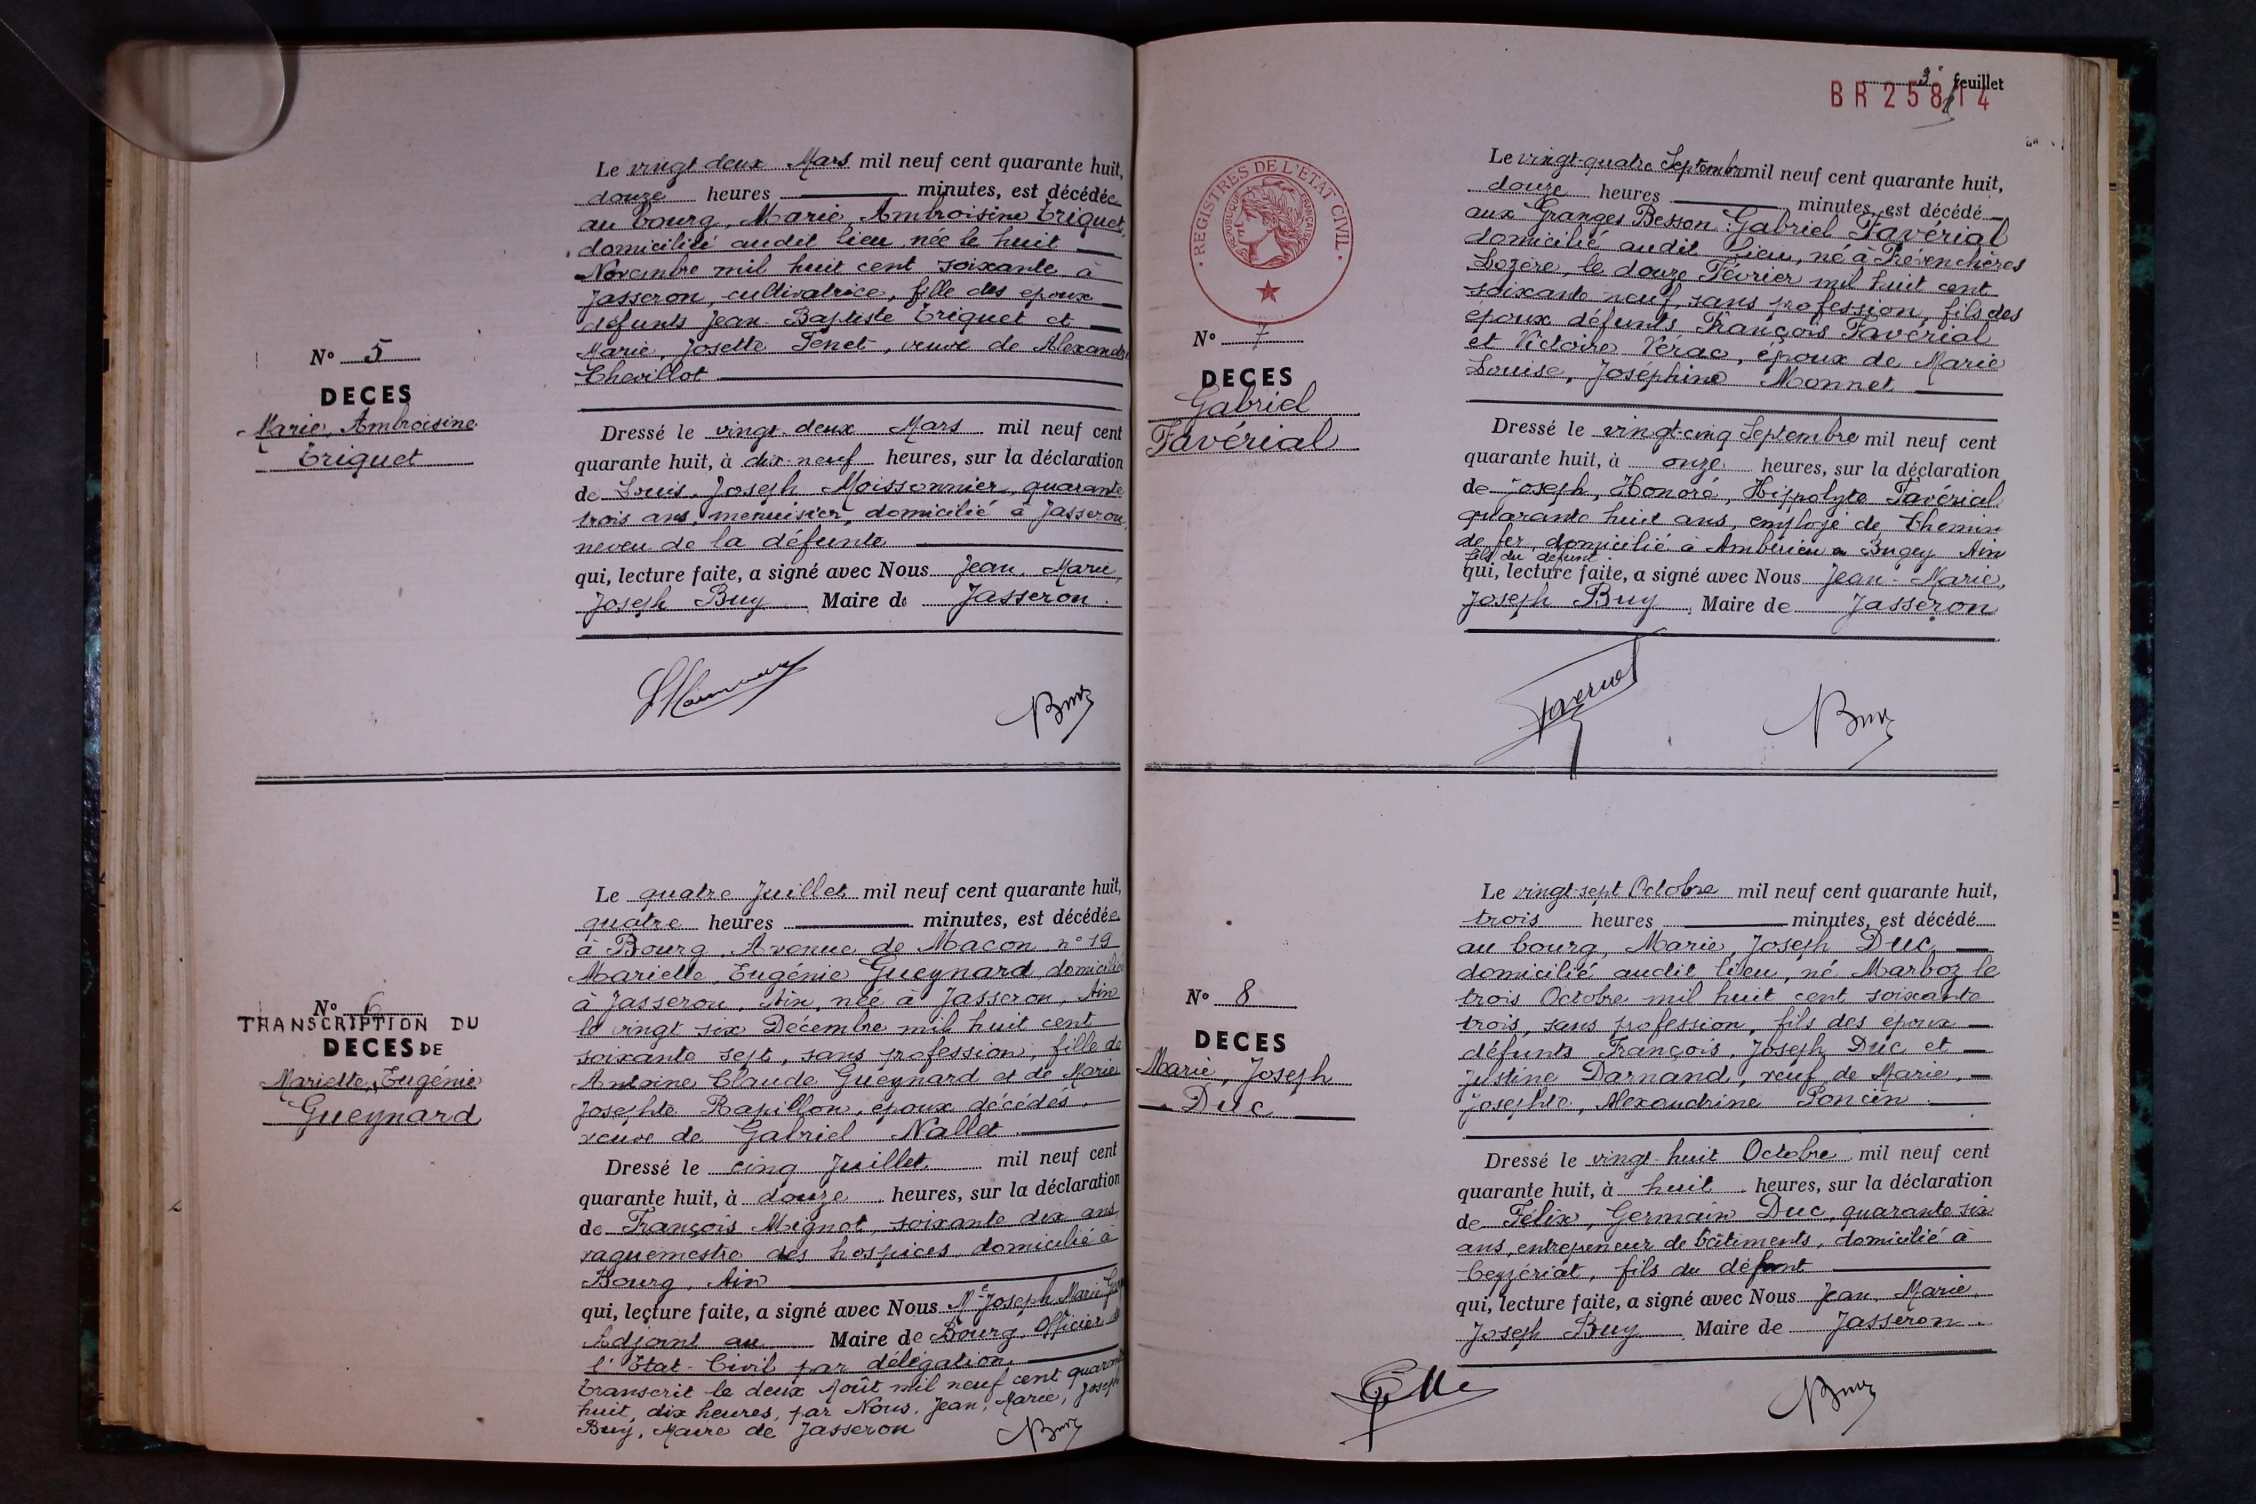 N° 5
DECES
Marie, Ambroisine
Triquet
Le vingt deux Mars mil neuf cent quarante huit,
douze heures minutes, est décédée
au bourg, Marie Ambroisine Triquet,
domicilié audit lieu née le huit
Novembre mil huit cent soixante à
Jasseron, cultivatrice, fille des époux
défunts Jean-Baptiste Triquet et
Marie, Josette Tenet, veuve de Alexandre
Chevillot
Dressé le vingt-deux Mars mil neuf cent
quarante huit, à dix-neuf heures, sur la déclaration
de Louis, Joseph Moissonnier, quarante
trois ans, menuisier, domicilié à Jasseron,
neveu de la défunte
qui, lecture faite, a signé avec Nous Jean, Marie,
Joseph Buy Maire de Jasseron
Buy
N° 6
TRANSCRIPTION DU
DECES DE
Mariette, Eugénie
Gueynard
Le quatre Juillet mil neuf cent quarante huit,
quatre heures minutes, est décédée
à Bourg, Avenue de Macon n° 19
Mariette, Eugénie Gueynard domiciliée
à Jasseron, Ain, née à Jasseron, Ain
le vingt six Décembre mil huit cent
soixante sept, sans profession, fille de
Antoine Claude Gueynard et de Marie
Josephte Rapillon, époux décédés,
veuve de Gabriel Nallet
Dressé le cinq Juillet mil neuf cent
quarante huit, à douze heures, sur la déclaration
de François Mignot, soixante dix ans
vaguemestre des hospices domicilié à
Bourg, Ain
qui, lecture faite, a signé avec Nous Mr Joseph Marie
Adjoint au Maire de Bourg Officier de
l'Etat-Civil par délégation,
Transcrit le deux Août mil neuf cent quarante
huit, dix heures, par Nous, Jean, Marie, Joseph
Buy, Maire de Jasseron
Buy
3e feuillet
BR 25814
REGISTRES DE L'ETAT CIVIL
REPUBLIQUE FRANÇAISE
N° 7
DECES
Gabriel
Favérial
Le vingt-quatre Septembre mil neuf cent quarante huit,
douze heures minutes, est décédé
aux Granges Besson Gabriel Favérial
domicilié audit lieu, né à Prévenchères
Lozère, le douze Février mil huit cent
soixante neuf, sans profession, fils des
époux défunts François Favérial
et Victoire Vérac, époux de Marie
Louise, Joséphine Monnet
Dressé le vingt-cinq Septembre mil neuf cent
quarante huit, à onze heures, sur la déclaration
de Joseph, Honoré, Hippolyte Favérial
quarante huit ans, employé de Chemin
de fer, domicilié à Ambérieu en Bugey Ain
fils du défunt
qui, lecture faite, a signé avec Nous Jean-Marie,
Joseph Buy Maire de Jasseron
Buy
N° 8
DECES
Marie, Joseph
Duc
Le vingt-sept Octobre mil neuf cent quarante huit,
trois heures minutes, est décédé
au bourg, Marie, Joseph Duc
domicilié audit lieu, né Marboz le
trois Octobre mil huit cent soixante
trois, sans profession, fils des époux
défunts François, Joseph Duc et
Justine Darnand, veuf de Marie,
Josephte, Alexandrine Poncin
Dressé le vingt-huit Octobre mil neuf cent
quarante huit, à huit heures, sur la déclaration
de Félix, Germain Duc, quarante six
ans, entrepreneur de bâtiments, domicilié à
Ceyzériat, fils du défunt
qui, lecture faite, a signé avec Nous Jean, Marie,
Joseph Buy Maire de Jasseron
Buy